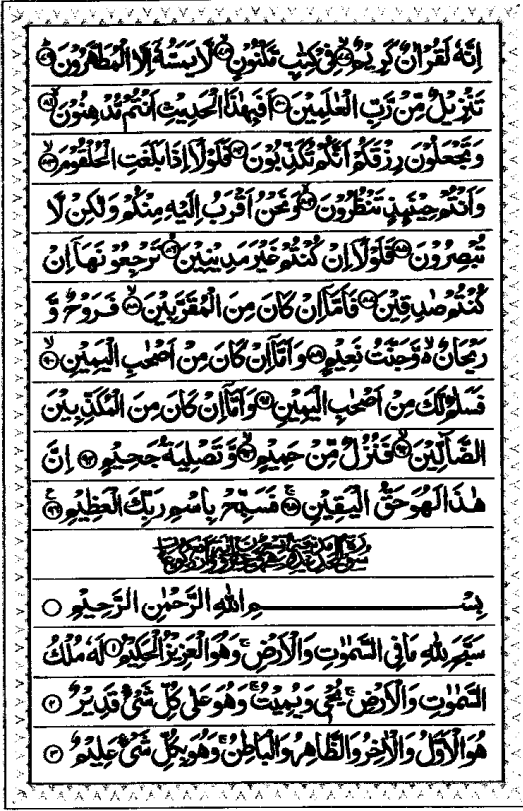 اِنَّهٗ لَقُرْاٰنٌ كَرِيْمٌ ۙ۝۷۷ فِيْ كِتٰبٍ مَّكْنُوْنٍ ۙ۝۷۸ لَّا يَمَسُّهٗۤ اِلَّا الْمُطَهَّرُوْنَ ؕ۝۷۹
تَنْزِيْلٌ مِّنْ رَّبِّ الْعٰلَمِيْنَ ۝۸۰ اَفَبِهٰذَا الْحَدِيْثِ اَنْتُمْ مُّدْهِنُوْنَ ۙ۝۸۱
وَ تَجْعَلُوْنَ رِزْقَكُمْ اَنَّكُمْ تُكَذِّبُوْنَ ۝۸۲ فَلَوْ لَاۤ اِذَا بَلَغَتِ الْحُلْقُوْمَ ۙ۝۸۳
وَ اَنْتُمْ حِيْنَئِذٍ تَنْظُرُوْنَ ۙ۝۸۴ وَ نَحْنُ اَقْرَبُ اِلَيْهِ مِنْكُمْ وَ لٰكِنْ لَّا
تُبْصِرُوْنَ ۝۸۵ فَلَوْ لَاۤ اِنْ كُنْتُمْ غَيْرَ مَدِيْنِيْنَ ۙ۝۸۶ تَرْجِعُوْنَهَاۤ اِنْ
كُنْتُمْ صٰدِقِيْنَ ۝۸۷ فَاَمَّاۤ اِنْ كَانَ مِنَ الْمُقَرَّبِيْنَ ۙ۝۸۸ فَرَوْحٌ وَّ
رَيْحَانٌ ۙ۬ وَّ جَنَّتُ نَعِيْمٍ ۝۸۹ وَ اَمَّاۤ اِنْ كَانَ مِنْ اَصْحٰبِ الْيَمِيْنِ ۙ۝۹۰
فَسَلٰمٌ لَّكَ مِنْ اَصْحٰبِ الْيَمِيْنِ ؕ۝۹۱ وَ اَمَّاۤ اِنْ كَانَ مِنَ الْمُكَذِّبِيْنَ
الضَّآلِّيْنَ ۙ۝۹۲ فَنُزُلٌ مِّنْ حَمِيْمٍ ۙ۝۹۳ وَّ تَصْلِيَةُ جَحِيْمٍ ۝۹۴ اِنَّ
هٰذَا لَهُوَ حَقُّ الْيَقِيْنِ ۚ۝۹۵ فَسَبِّحْ بِاسْمِ رَبِّكَ الْعَظِيْمِ ۠۝۹۶
بِسْمِ اللّٰهِ الرَّحْمٰنِ الرَّحِيْمِ ۝
سَبَّحَ لِلّٰهِ مَا فِي السَّمٰوٰتِ وَ الْاَرْضِ ۚ وَ هُوَ الْعَزِيْزُ الْحَكِيْمُ ۝۱ لَهٗ مُلْكُ
السَّمٰوٰتِ وَ الْاَرْضِ ۚ يُحْيٖ وَ يُمِيْتُ ۚ وَ هُوَ عَلٰى كُلِّ شَيْءٍ قَدِيْرٌ ۝۲
هُوَ الْاَوَّلُ وَ الْاٰخِرُ وَ الظَّاهِرُ وَ الْبَاطِنُ ۚ وَ هُوَ بِكُلِّ شَيْءٍ عَلِيْمٌ ۝۳